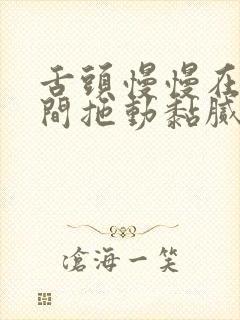 舌頭慢慢在
間拖動黏膩
滄海一笑